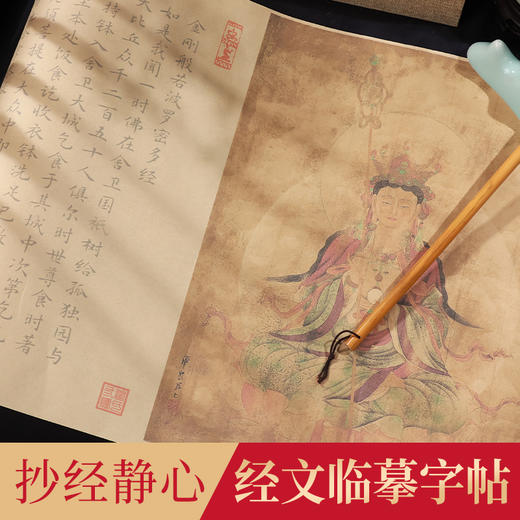 金刚般若波罗密多经
如是我闻一时佛在舍卫国祇树给孤独园与
大比丘众千二百五十人俱尔时世尊食时著
持钵入舍卫大城乞食于其城中次第乞
本处饭食讫收衣钵洗足已敷
菩提在大众中即
抄经静心
经文临摹字帖